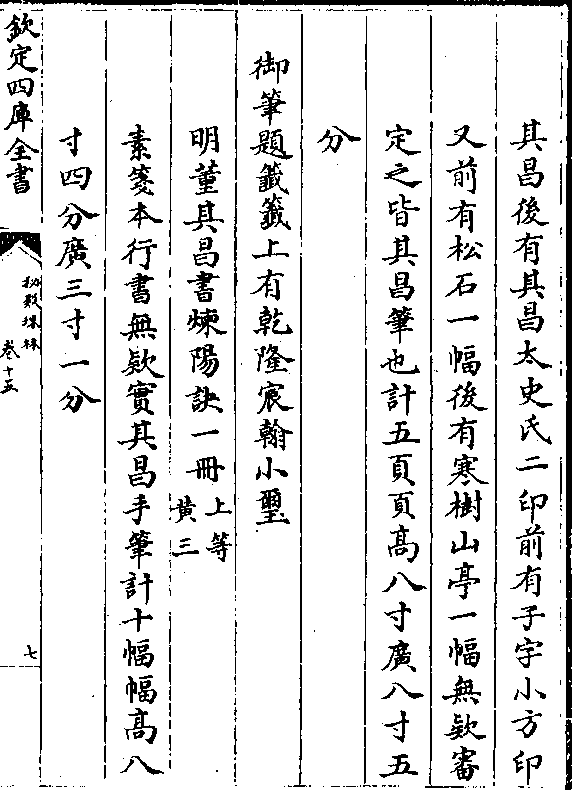 其昌後有其昌太史氏二印前有子字小方印
又前有松石一幅後有寒樹山亭一幅無欵審
定之皆其昌筆也計五頁頁髙八寸廣八寸五
分
御筆題籤籤上有乾隆宸翰小璽
明董其昌書煉陽訣一冊 上等
黄三
素箋本行書無欵實其昌手筆計十幅幅髙八
寸四分廣三寸一分
欽定四庫全書
秘殿珠林
卷十五
七